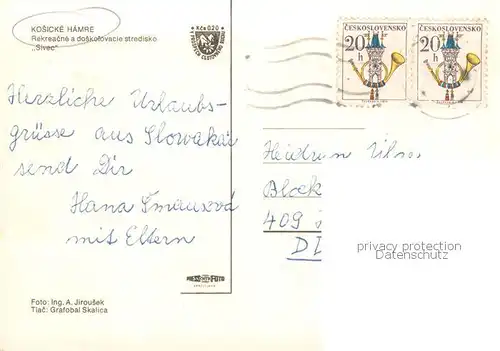 KOŠICKÉ HÁMRE
Rekreačné a doškoľovacie stredisko
„Sivec"
Kčs 0,20
ČESKOSLOVENSKO
20
h
ČESKOSLOVENSKO
20
h
Herzliche Urlaubs-
grüsse aus Slowakai
send Dir
Hana Šmausová
mit Eltern
Heidrun
Block
409
privacy protection
Datenschutz
PRESSFOTO
Foto: Ing. A. Jiroušek
Tlač: Grafobal Skalica